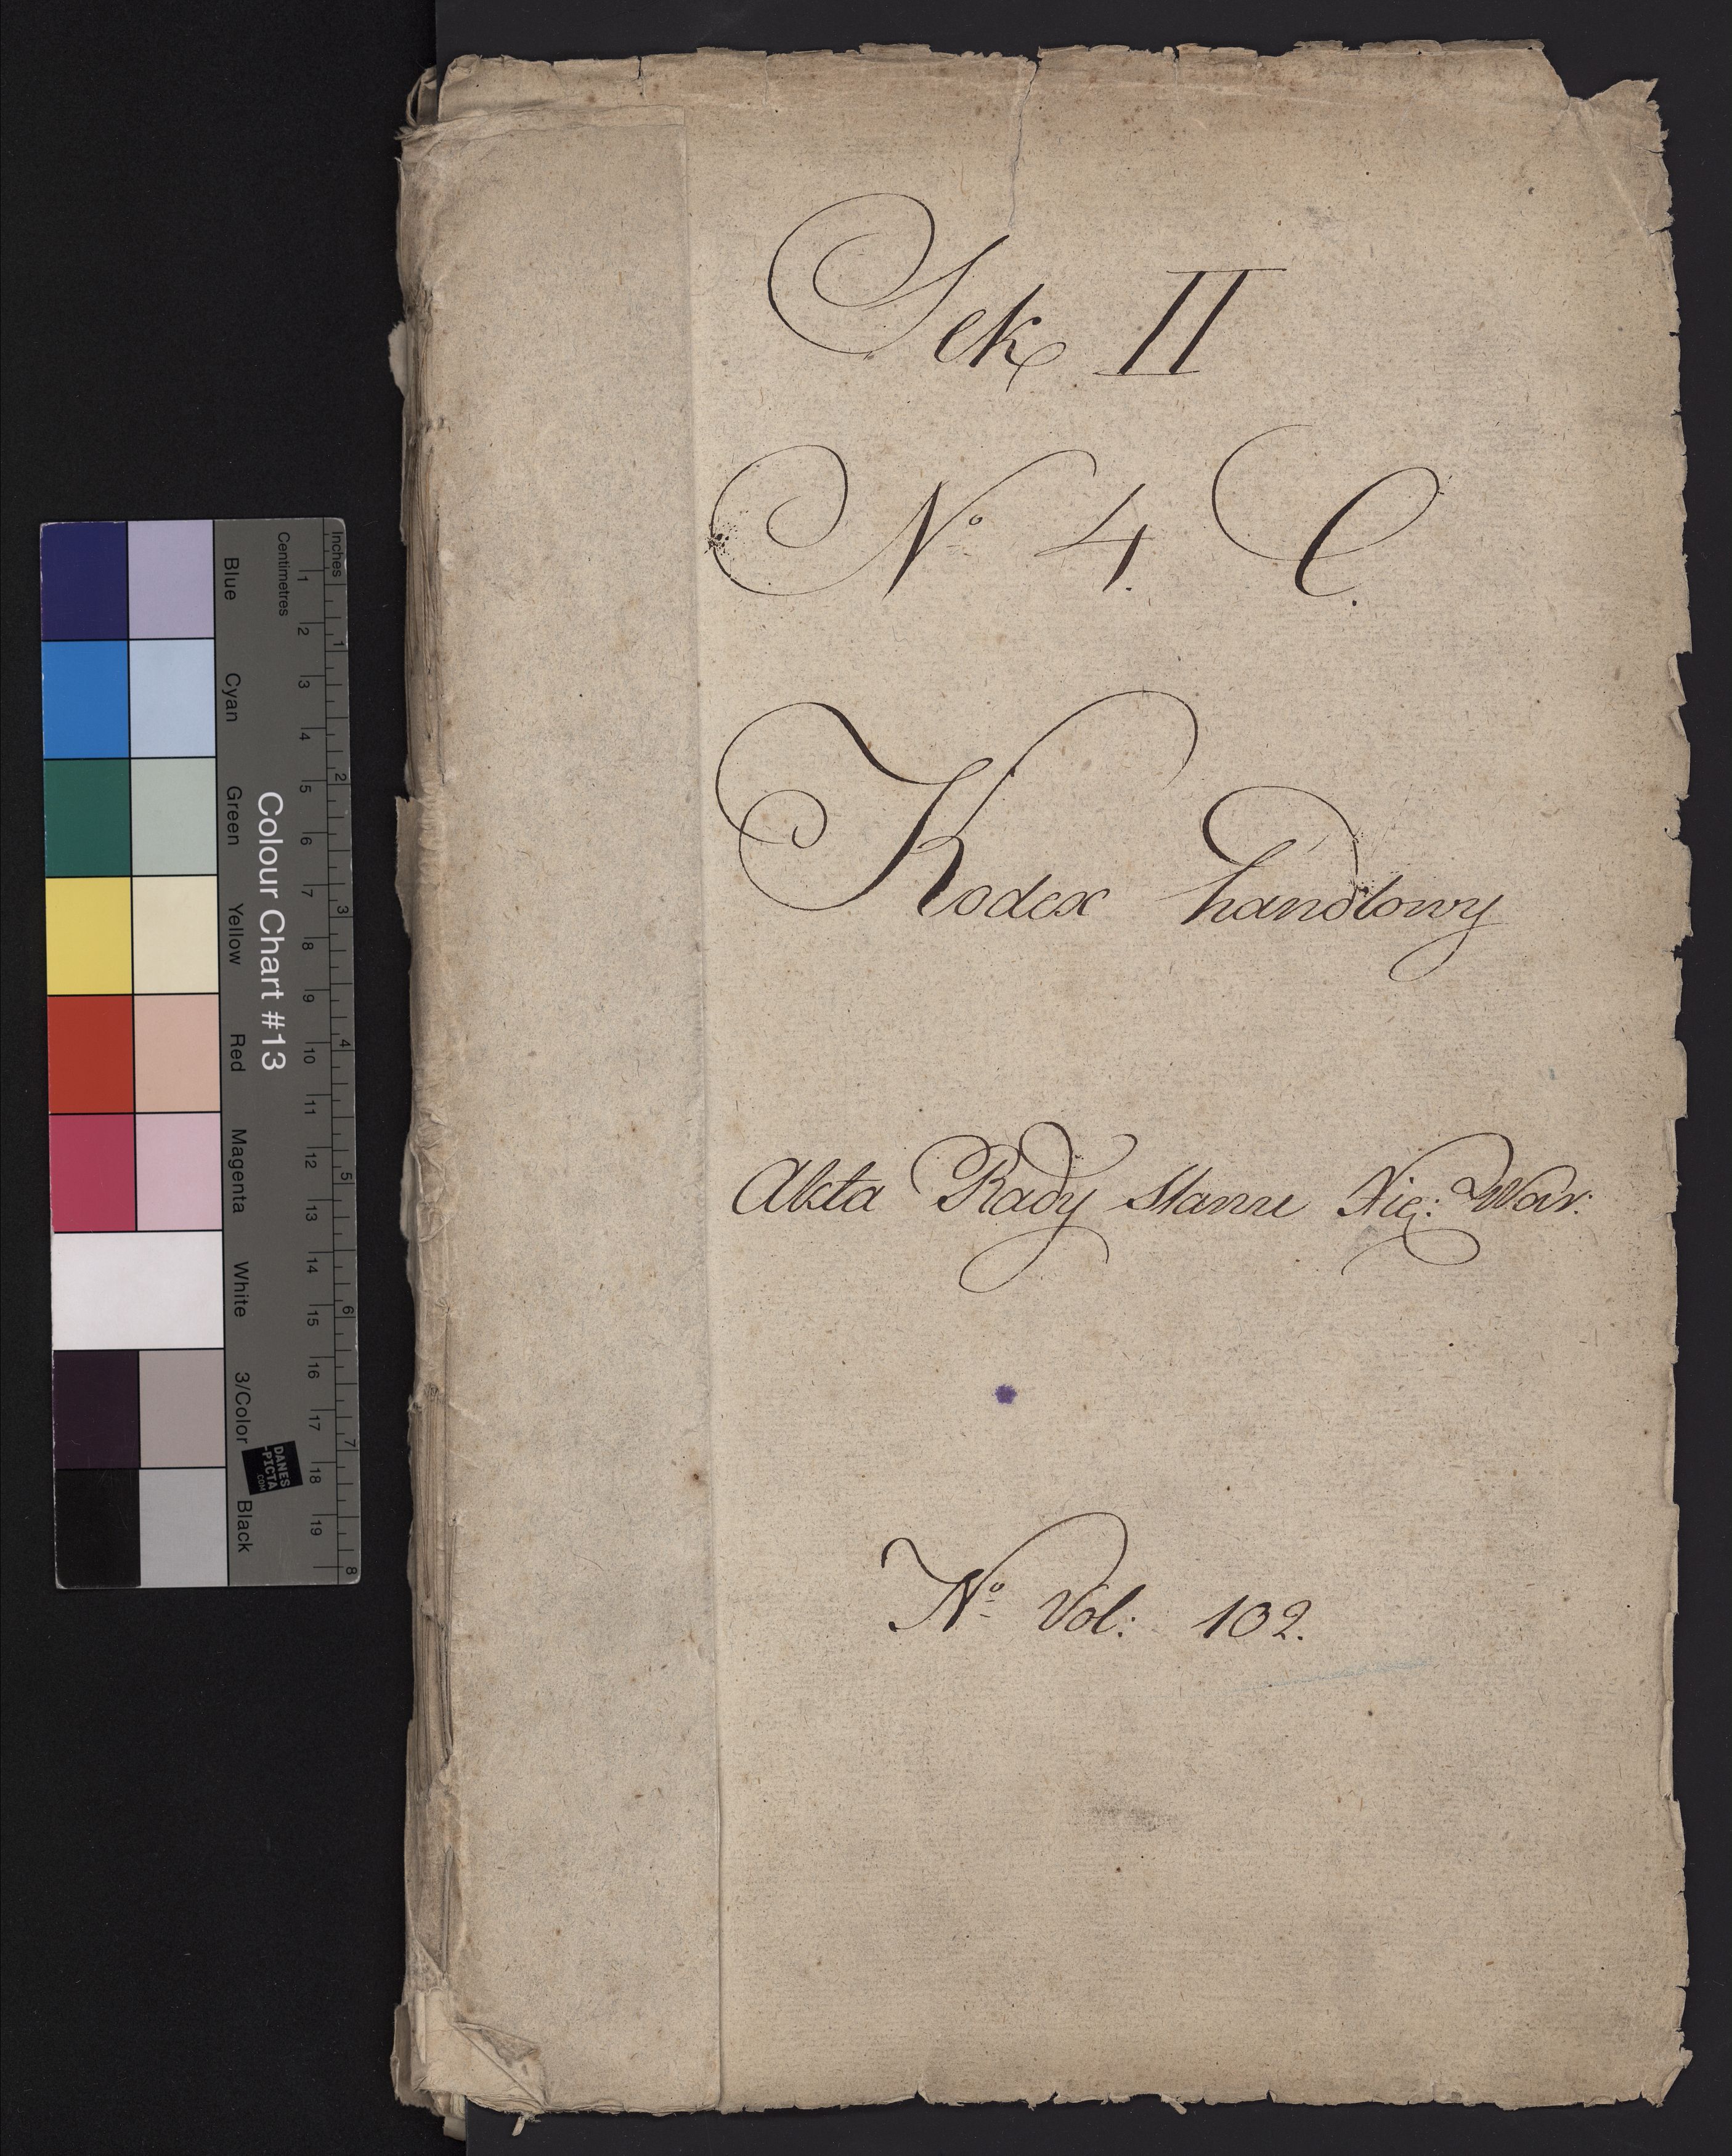 Sek II
No 4. C.
Kodex handlowy
Akta Rady Stanu Xię: War:
No Vol: 102.
Inches
Centimetres
1 2 3 4 5 6 7 8 9 10 11 12 13 14 15 16 17 18 19
1 2 3 4 5 6 7 8
Colour Chart #13
Blue Cyan Green Yellow Red Magenta White 3/Color Black
DANES
-PICTA
.COM